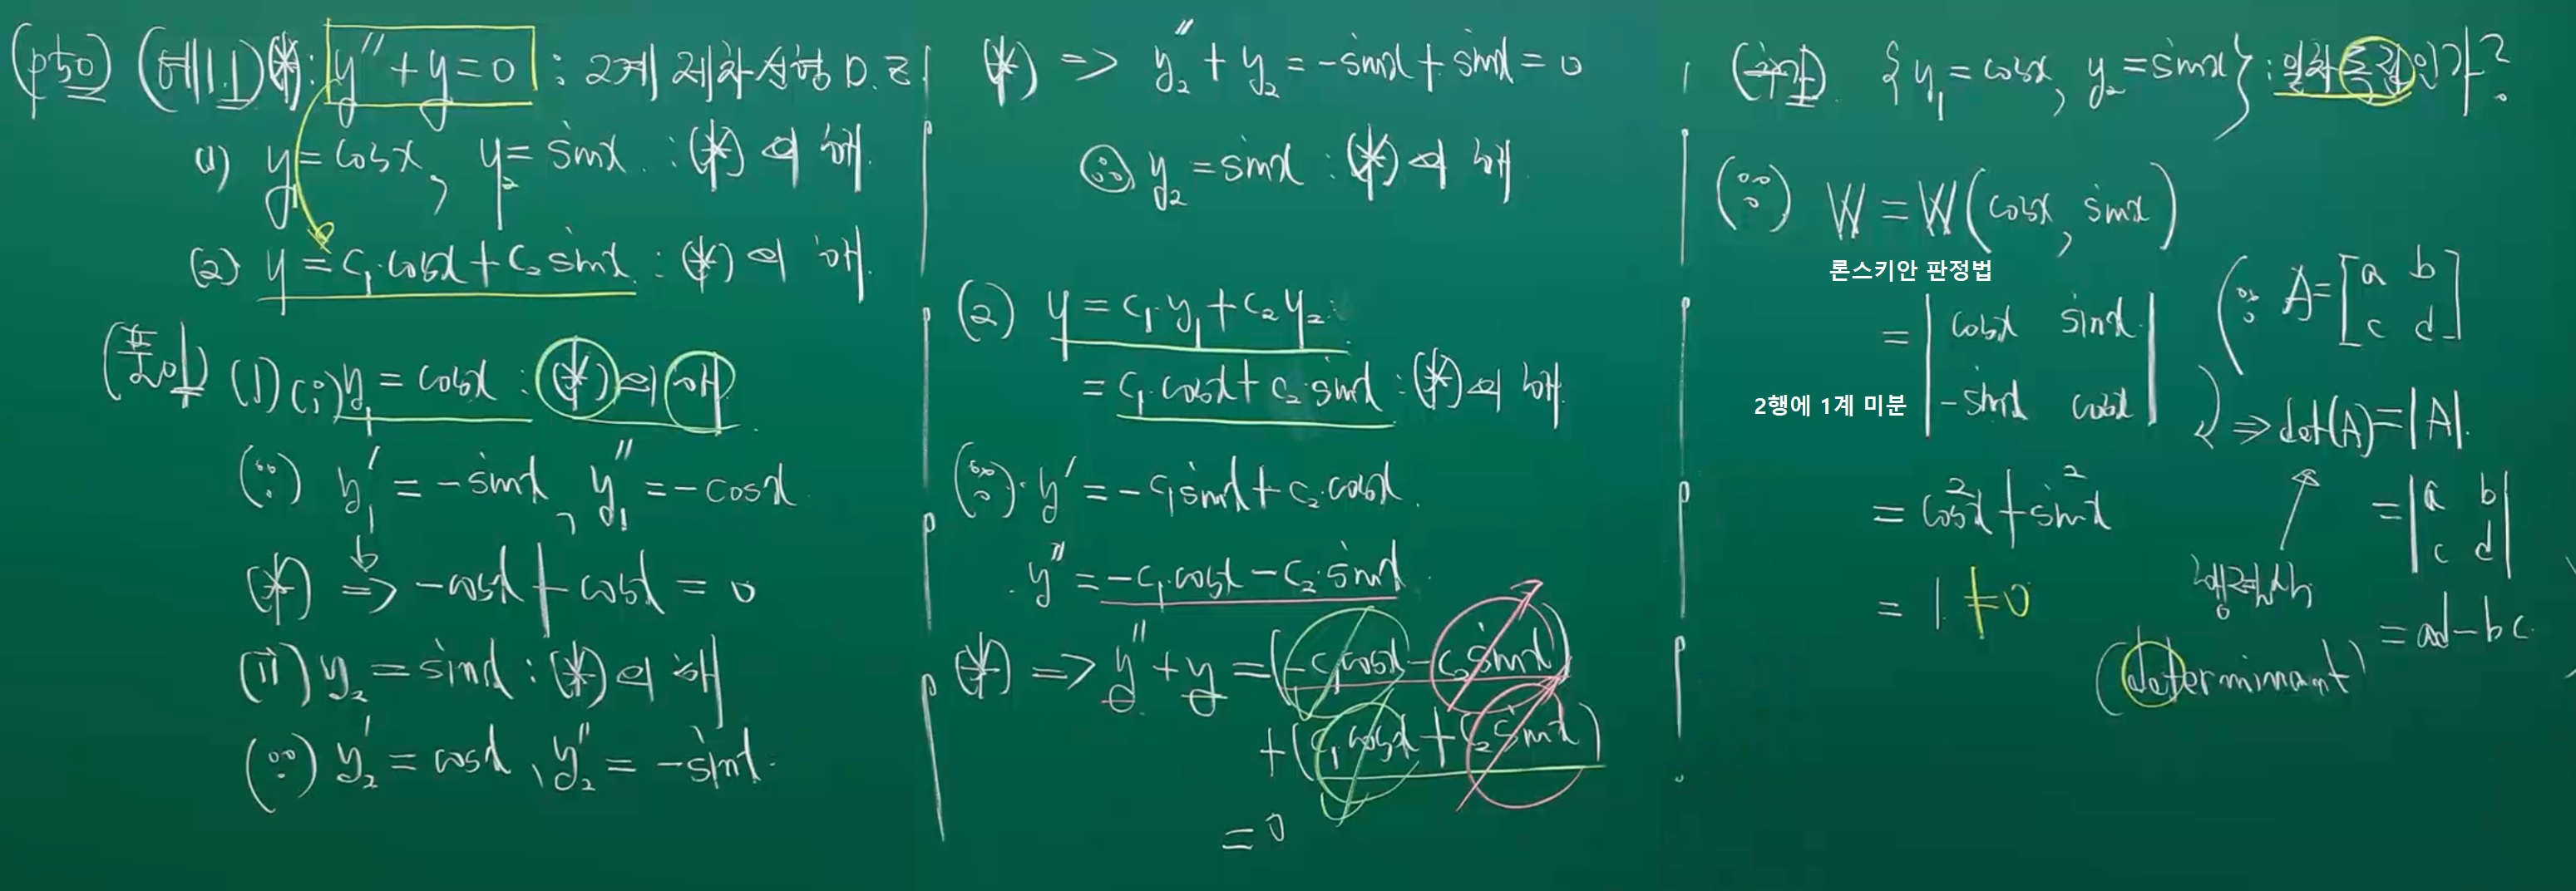 (p50) (예1.1) (*): y″ + y = 0 : 2계 제차선형 D.E
(1) y₁ = cosx, y₂ = sinx : (*)의 해
(2) y = c₁·cosx + c₂ sinx : (*)의 해
(풀이) (1) (i) y₁ = cosx : (*)의 해
(∵) y₁′ = -sinx, y₁″ = -cosx
(*) ⇒ -cosx + cosx = 0
(ii) y₂ = sinx : (*)의 해
(∵) y₂′ = cosx, y₂″ = -sinx
(*) ⇒ y₂″ + y₂ = -sinx + sinx = 0
∴ y₂ = sinx : (*)의 해
(2) y = c₁·y₁ + c₂y₂
= c₁·cosx + c₂·sinx : (*)의 해
(∵) y′ = -c₁sinx + c₂·cosx
y″ = -c₁·cosx - c₂·sinx
(*) ⇒ y″ + y = (-c₁cosx - c₂sinx)
+ (c₁cosx + c₂sinx)
= 0
(추가) {y₁ = cosx, y₂ = sinx} : 일차독립인가?
(∵) W = W(cosx, sinx)
론스키안 판정법
= | cosx sinx |
2행에 1계 미분 | -sinx cosx |
= cos²x + sin²x
= 1 ≠ 0
(∵ A = [a b
c d]
⇒ det(A) = |A|
= |a b
c d|
= ad - bc
행렬식
(determinant)